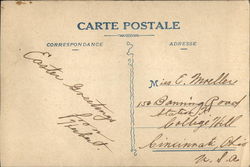 CARTE POSTALE
CORRESPONDANCE
ADRESSE
Easter Greetings
Miss C. Moeller
150 Banning Road
College Hill
Cincinnati
U.S.A